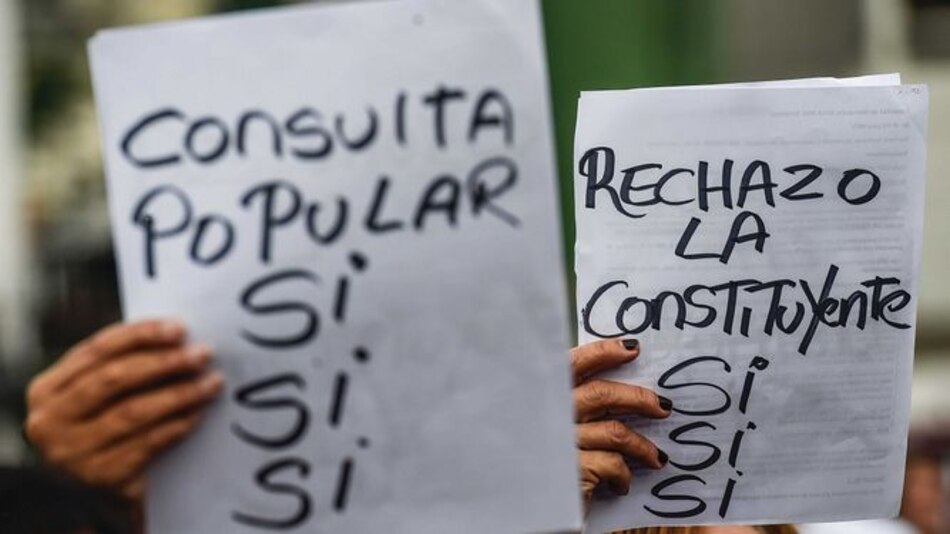 CONSUlTA
POPULAR
Si
Si
Si
RECHAZO
LA
CONSTITUYeNTe
Si
Si
Si